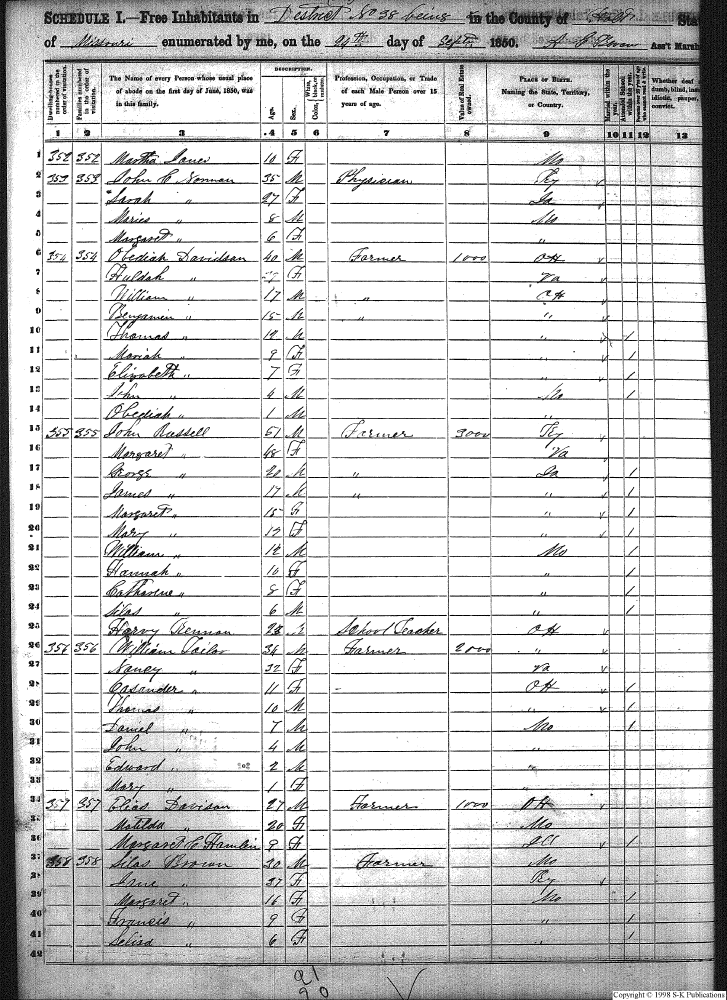 SCHEDULE I.—Free Inhabitants in District No 38 being in the County of Sta
of Missouri enumerated by me, on the 24th day of Sept 1850. Ass't Marsh
Dwelling-houses numbered in the order of visitation.
Families numbered in the order of visitation.
The Name of every Person whose usual place of abode on the first day of June, 1850, was in this family.
DESCRIPTION.
Age.
Sex.
Color,
Profession, Occupation, or Trade of each Male Person over 15 years of age.
Value of Real Estate owned.
PLACE OF BIRTH.
Naming the State, Territory, or Country.
Married within the year.
Attended School within the year.
Whether deaf dumb, blind, insane idiotic, pauper, convict.
1 2 3 4 5 6 7 8 9 10 11 12 13
1 352 352 Martha Janes 10 F Mo
2 353 353 John C Norman 35 M Physician Ky
3 Sarah " 27 F Ia
4 Maries " 8 M Mo
5 Margaret " 6 F "
6 354 354 Obediah Davidson 40 M Farmer 1000 OH
7 Huldah " F Va
8 William " 17 M " OH
9 Benjamin " 15 M " "
10 Thomas " 12 M " 1
11 Mariah " 9 F " 1
12 Elizabeth " 7 F " 1
13 John " 4 M Mo 1
14 Obediah " 1 M "
15 355 355 John Russell 51 M Farmer 3000 Ky
16 Margaret " 48 F Va
17 George " 20 M " Ia 1
18 James " 17 M " " 1
19 Margaret " 15 F " 1
20 Mary " 13 F " 1
21 William " 12 M Mo 1
22 Hannah " 10 F " 1
23 Catharine " 8 F " 1
24 Silas " 6 M " 1
25 Harvy 23 School Teacher OH
26 356 356 William Tailor 34 M Farmer 2000 "
27 Nancy " 32 F Va
28 Casander " 11 F - OH 1
29 Thomas " 10 M " 1
30 Daniel " 7 M Mo 1
31 John " 4 M "
32 Edward " 2 M "
33 Mary " 1 F
34 357 357 Elias Davison 27 M Farmer 1000 OH
35 Matilda " 20 F Mo
36 Margaret E Hamlin 9 F Ill 1
37 358 358 Silas Brown 30 M Farmer Mo
38 Jane " 37 F Ky
39 Margaret " 16 F Mo 1
40 Francis " 9 F " 1
41 " 6 F " 1
42
21
20
Copyright © 1998 S-K Publications